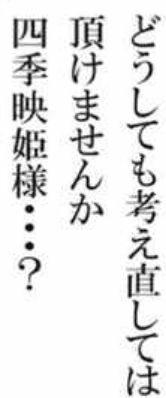 どうしても考え直しては
頂けませんか
四季映姫様・・・？